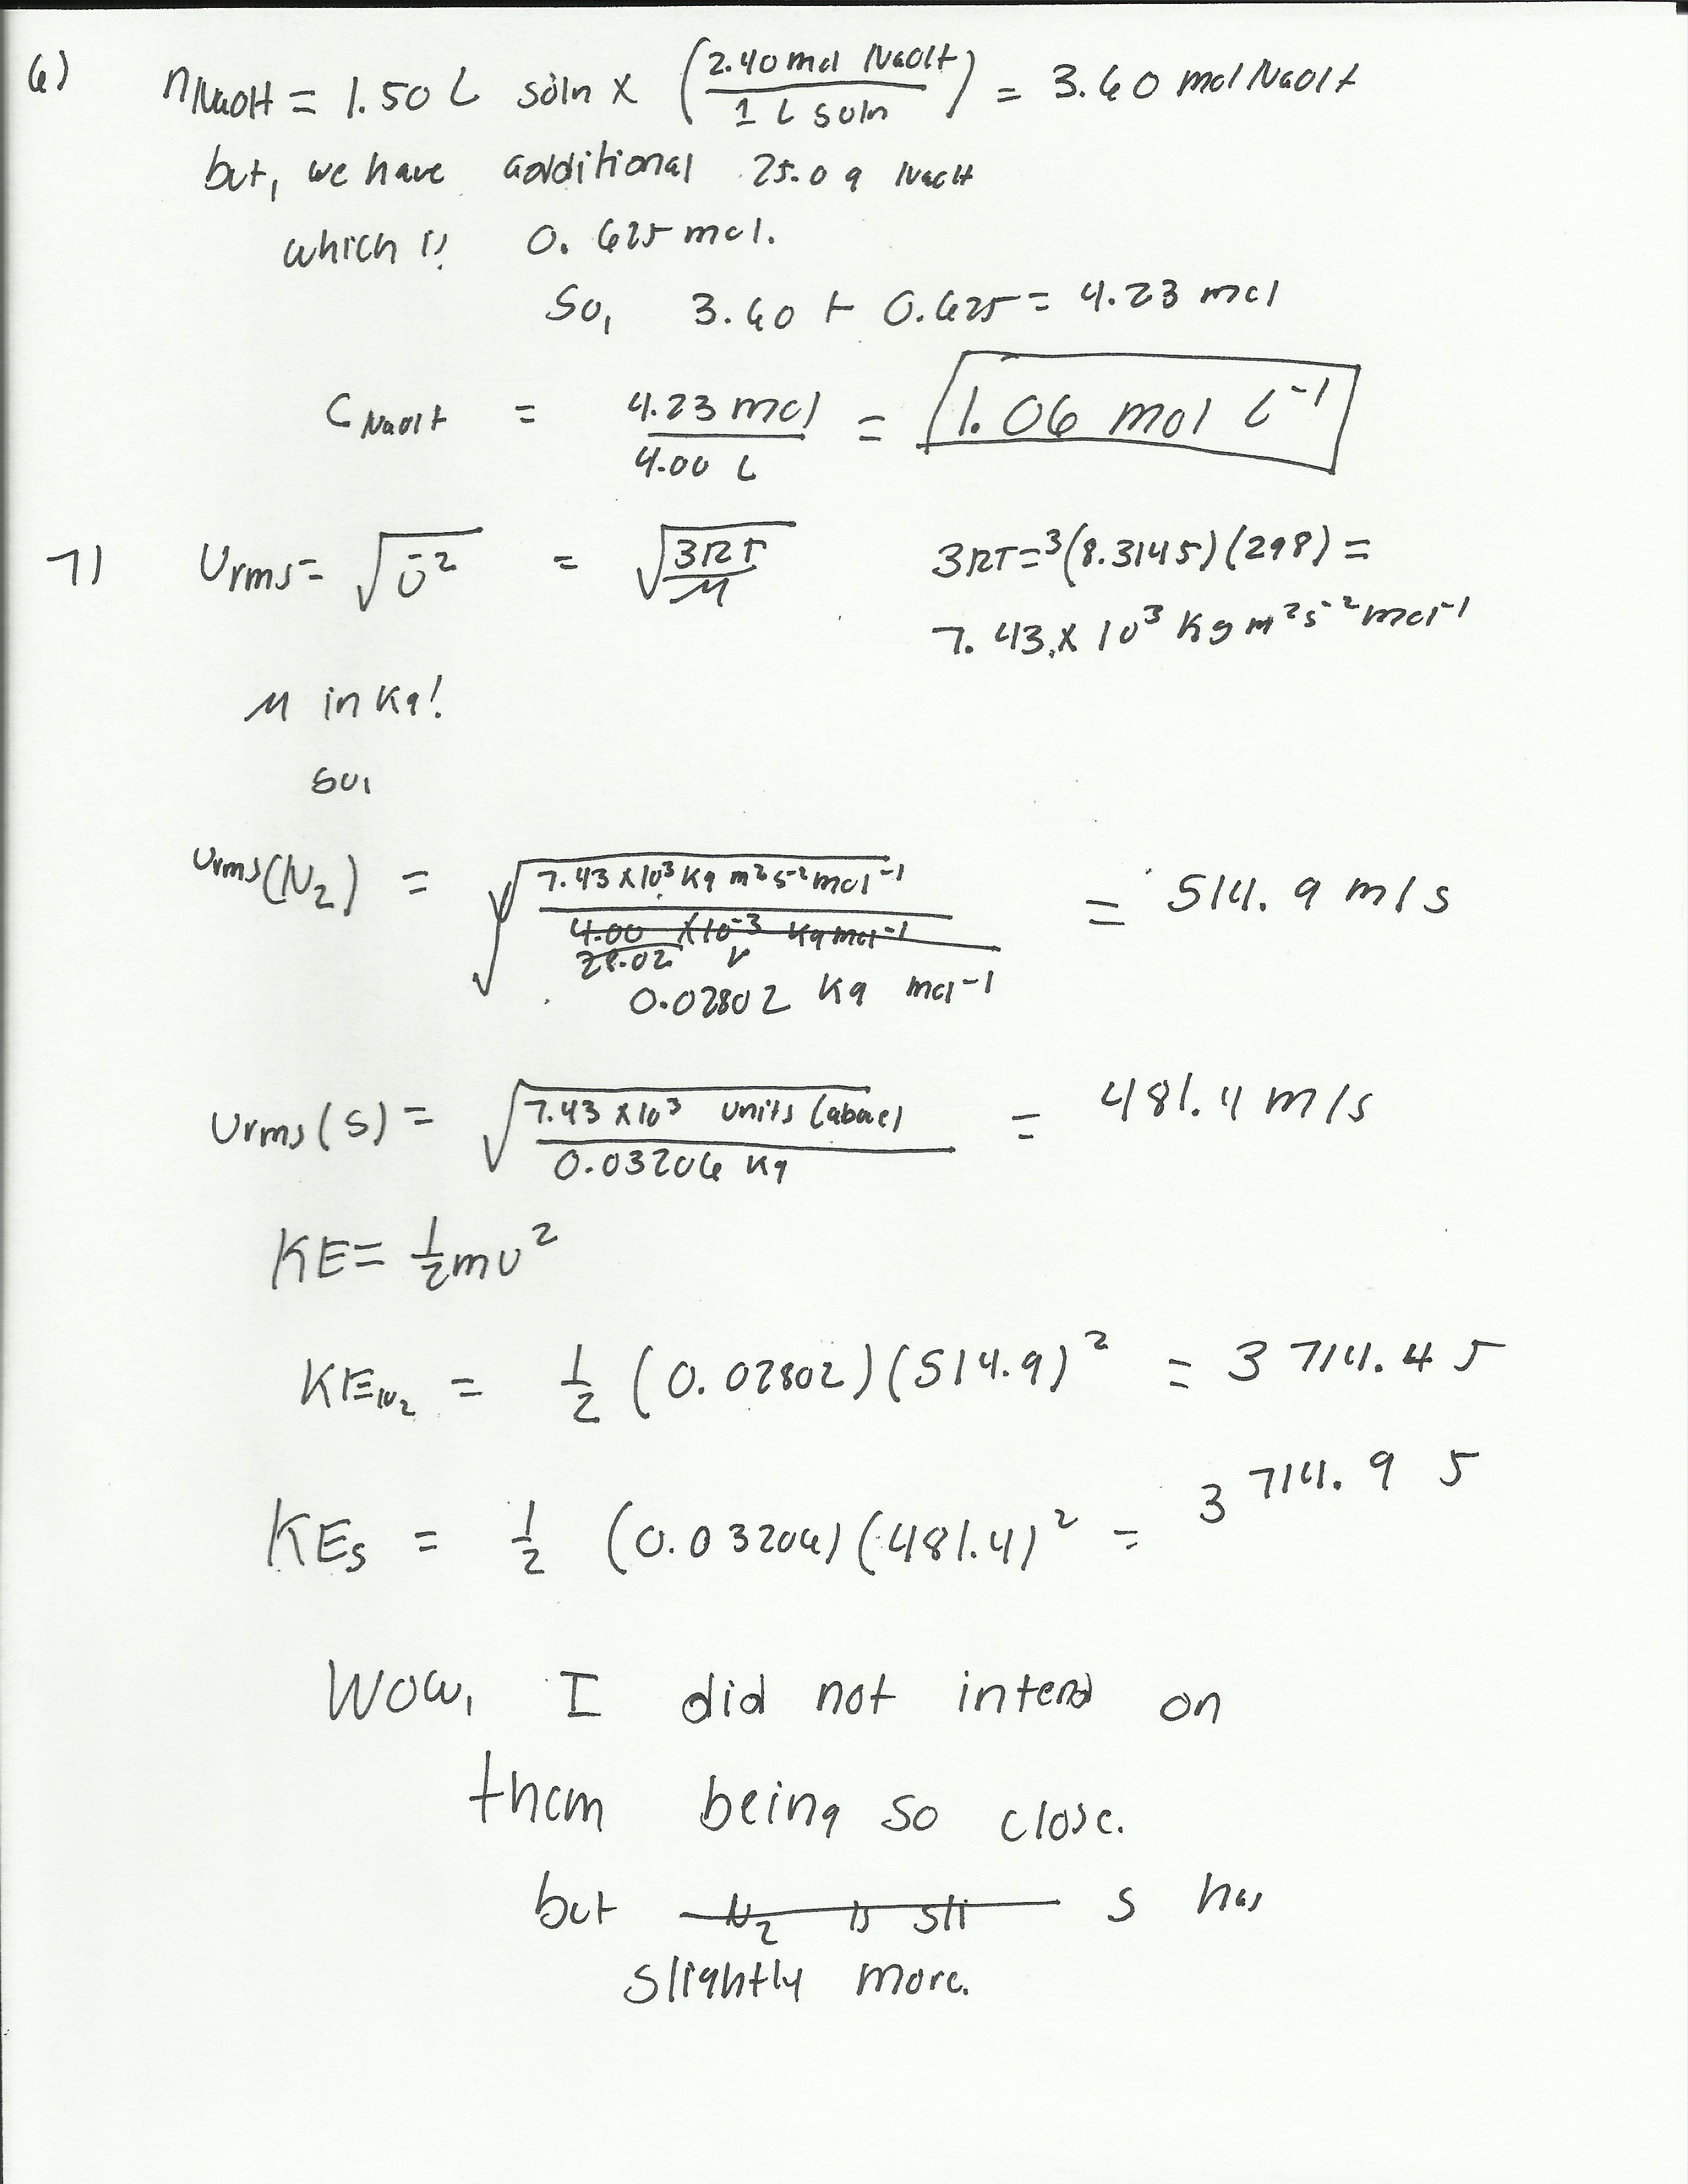 6) nNaOH = 1.50 L soln x (2.40 mol NaOH / 1 L soln) = 3.60 mol NaOH
but, we have additional 25.0 g NaOH
which is 0.625 mol.
So, 3.60 + 0.625 = 4.23 mol
CNaOH = 4.23 mol / 4.00 L = 1.06 mol L⁻¹
7) Urms = √Ū² = √(3RT / M) 3RT = 3(8.3145)(298) =
7.43 x 10³ Kg m² s⁻² mol⁻¹
M in Kg!
So,
Urms(N₂) = √(7.43 x 10³ Kg m² s⁻² mol⁻¹ / 4.00 x 10⁻³ Kg mol⁻¹ 28.02 0.02802 Kg mol⁻¹) = 514.9 m/s
Urms(S) = √(7.43 x 10³ units (above) / 0.03206 Kg) = 481.4 m/s
KE = ½mU²
KEN₂ = ½ (0.02802)(514.9)² = 3714.4 J
KES = ½ (0.03206)(481.4)² = 3714.9 J
Wow, I did not intend on
them being so close.
but N₂ is sli S has
slightly more.